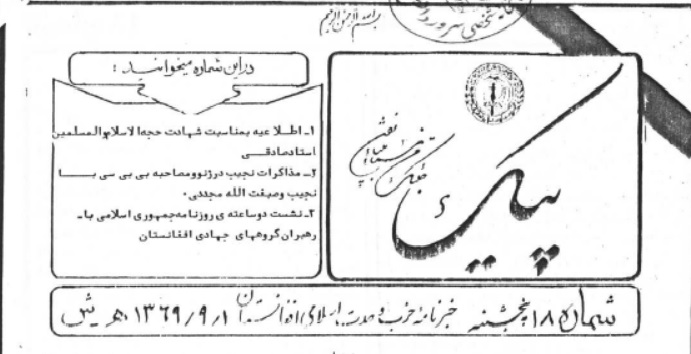 بسم الله الرحمن الرحیم
دراین شماره میخوانید :
۱ـ اطلا عیه بمناسبت شهادت حجه الاسلام والمسلمین
استادصادقــی
۲ـ مذاکرات نجیب درژنوومصاحبه بی بی سی بــا
نجیب وصبغت الله مجددی.
۳ـ نشست دوساعته ی روزنامه جمهوری اسلامی با ـ
رهبران گروههای جهادی افغانستان
پیک
شماره ۱۸ پنجشنبه خبرنامه حزب وحدت اسلامی افغانستان ۱۳۶۹/۹/۱ هـ ـ ش